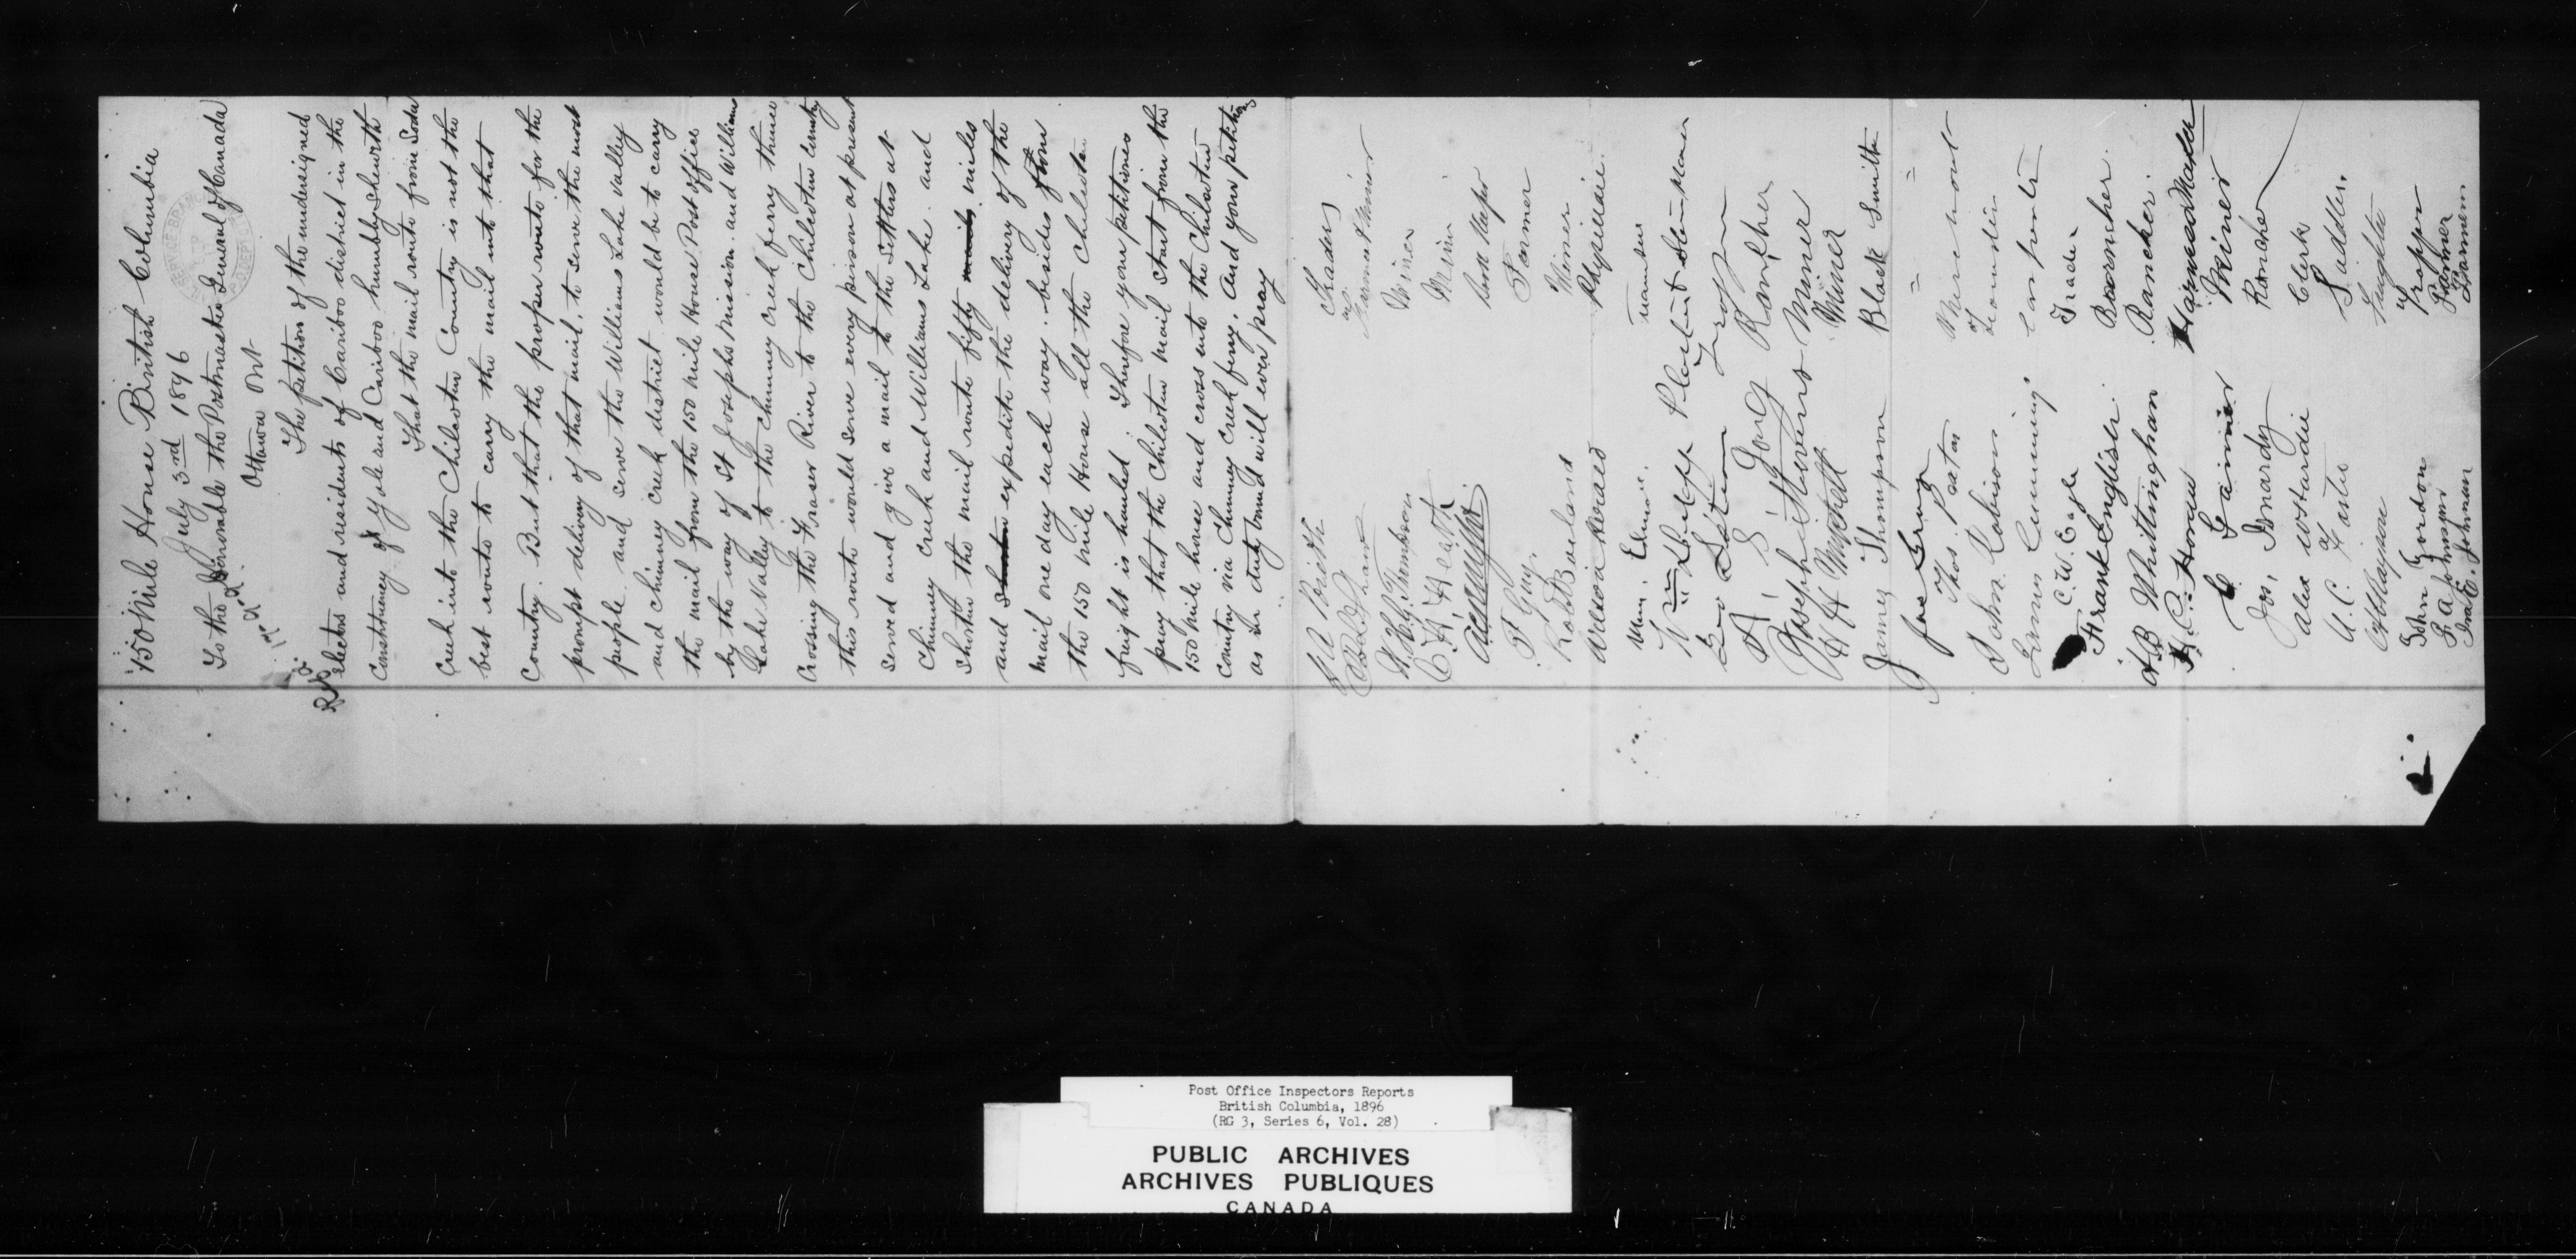 150 Mile House British Columbia
July 3rd 1896
To the Honorable the Postmaster General of Canada
Ottawa Ont
The petition of the undersigned
electors and residents of Cariboo district in the
Constituency of Yale and Cariboo humbly sheweth
That the mail route from Soda
Creek into the Chilcoten Country is not the
best route to carry the mail into that
Country. But that the proper route for the
prompt delivery of that mail, to serve the most
people and serve the Williams Lake Valley
and Chimney Creek district would be to carry
the mail from the 150 Mile House Post office
by the way of St Josephs Mission and Williams
Lake Valley to the Chimney Creek ferry thence
Crossing the Fraser River to the Chilcoten Country
this route would serve every person at present
served and give a mail to the Settlers at
Chimney Creek and Williams Lake and
shorten the mail route fifty miles
and expedite the delivery of the
mail one day each way. besides from
the 150 Mile House all the Chilcoten
freight is hauled. Therefore your petitioners
pray that the Chilcoten mail start from the
150 Mile house and cross into the Chilcoten
Country via Chimney Creek ferry. And your petitioners
as in duty bound will ever pray
Trader
Miner
C. H. Heath
Book Keeper
St Guy. Farmer
Robt Borland Miner
Physician
Wm.
Geo
A. S. Long Rancher
Joseph Stevens Miner
A H Mitchell Miner
James Thompson Black Smith
Jas
Thos. Paton
John Robinson
Cumming Carpenter
C. W. Eagle Trader
Frank English
A B Whittingham Rancher
H. C. Horan Harness Maker
Miner
Jos. Rancher
Alex Clerk
A. C. Saddler.
John Gordon Trapper
Johnson Farmer
Ira E. Johnson
Post Office Inspectors Reports
British Columbia, 1896
(RG 3, Series 6, Vol. 28)
PUBLIC ARCHIVES
ARCHIVES PUBLIQUES
CANADA